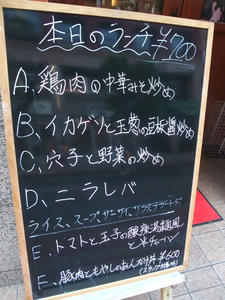 本日のランチ ¥700
A、鶏肉の中華みそ炒め
B、イカゲソと玉葱の豆板醤炒め
C、穴子と野菜の炒め
D、ニラレバ
ライス、スープ、サラダ、デザート
E、トマトと玉子の酸辣湯麺風
F、豚肉ともやしのあんかけ丼 ¥600